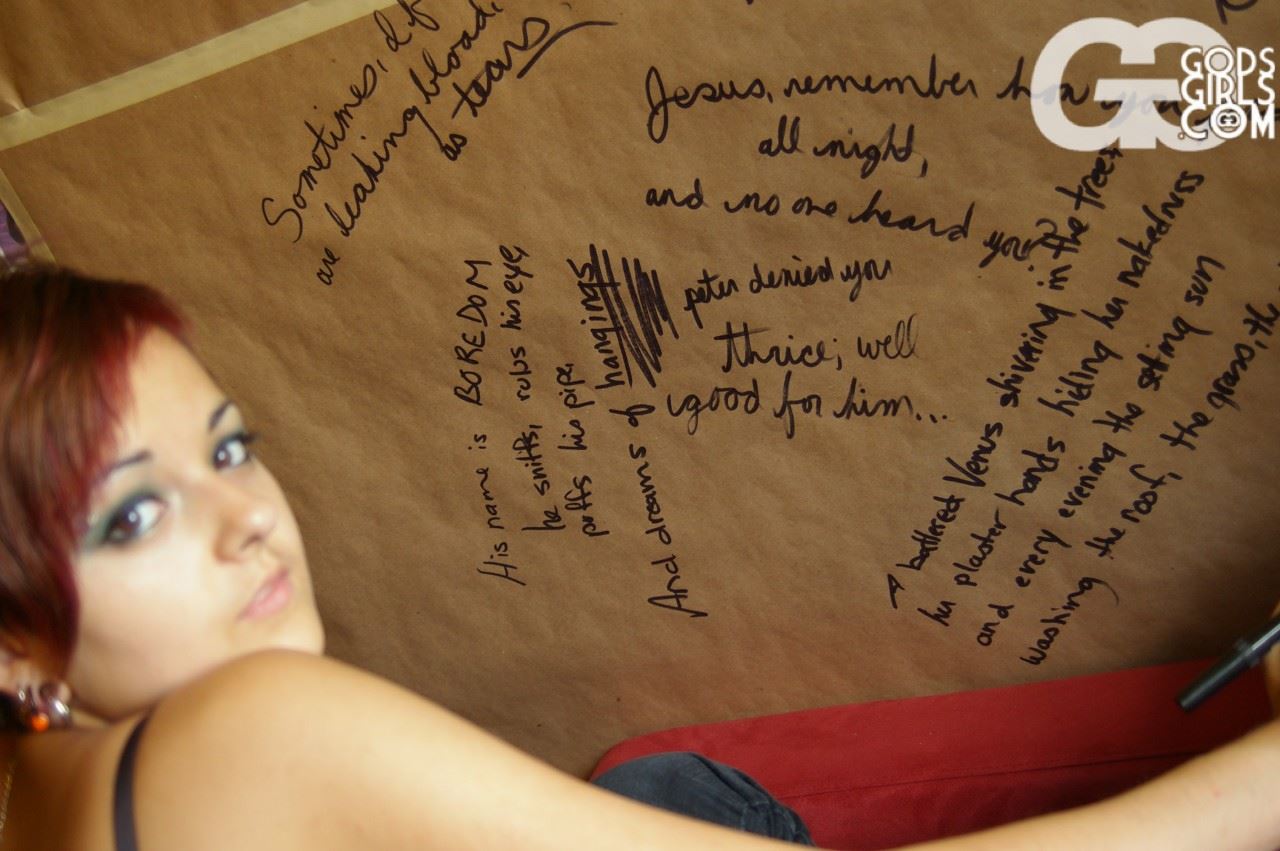 Sometimes, I
are leaking blood,
as tears
Jesus, remember how you
all night,
and no one heard you?
peter denied you
thrice; well
good for him...
His name is BOREDOM
he sniffs, rubs his eye,
puffs his pipe,
And dreams of hangings
battered Venus shivering in the trees
her plaster hands hiding her nakedness
and every evening the setting sun
washing the roof, the grass, the
GG
GODS
GIRLS
.COM